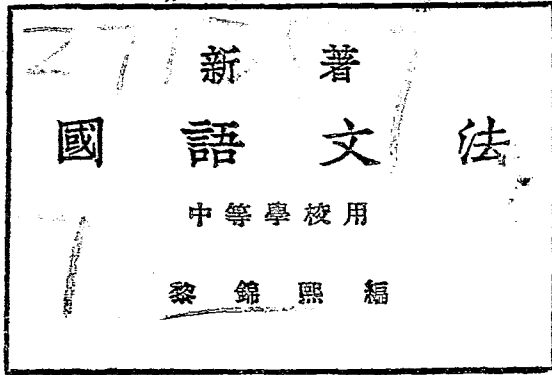 新著
國語文法
中等學校用
黎錦熙編